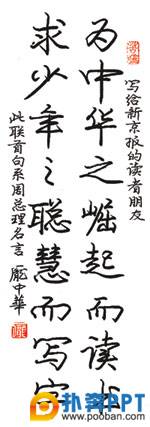 写给新京报的读者朋友
为中华之崛起而读书
求少年之聪慧而写字
此联首句系周总理名言 庞中华
扑奔PPT
www.pooban.com